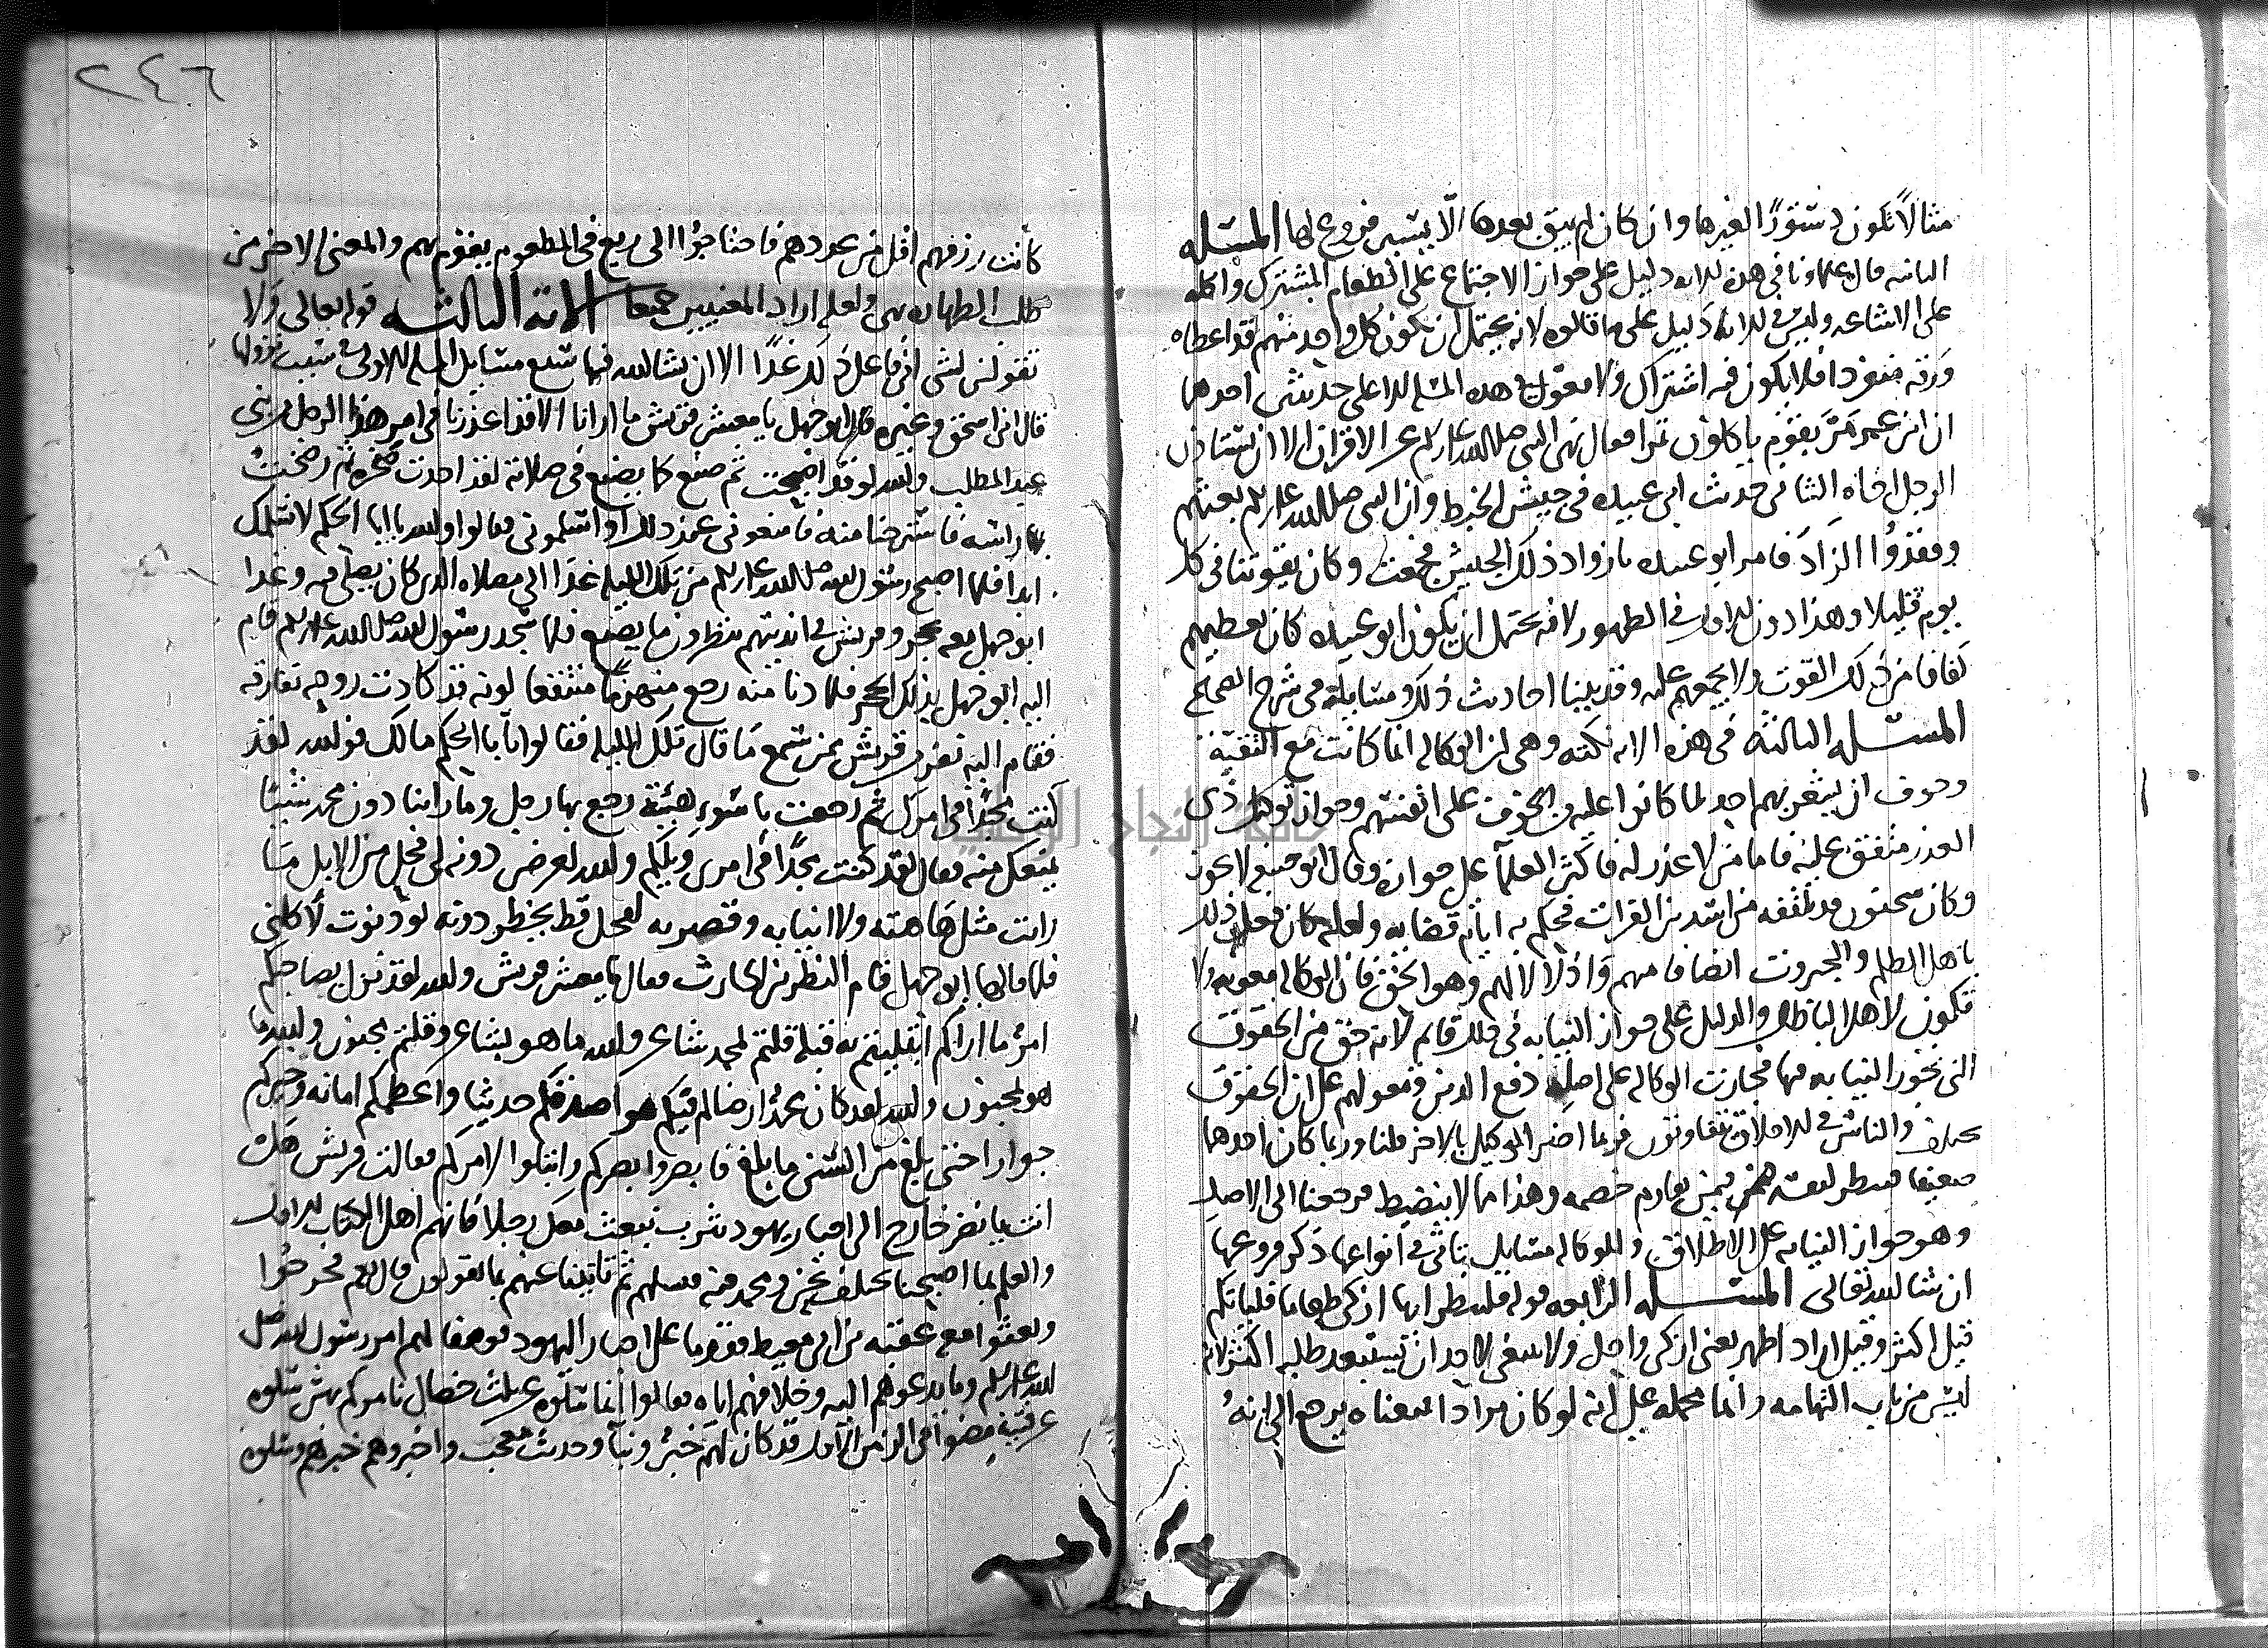 مثالا تكون دستورا لغيرها وان كان لم يبق بعدها الا يسير فروع لها المسئله
الثانيه قال علماونا في هذه الايه دليل على جواز الاجتماع على الطعام المشترك واكله
على الاشاعه وليس في الايه دليل على ما قالوه لانه يحتمل ان يكون كل واحد منهم قد اعطاه
ورقه منفردا فلا يكون فيه اشتراك ولا معول في هذه المسئله الا على حديثين احدهما
ان ابن عمر مر بقوم ياكلون تمرا فقال نهى النبي صلى الله عليه وسلم عن الاقران الا ان يستاذن
الرجل اخاه الثاني حديث ابي عبيده في جيش الخبط وان النبي صلى الله عليه وسلم بعثهم
وفقدوا الزاد فامر ابو عبيده بازواد ذلك الجيش فجمعت وكان يقيوتنا في كل
يوم قليلا وهذا دون الاول في الظهور لانه يحتمل ان يكون ابو عبيده كان يعطيهم
كفافا من ذلك القوت ولا يجمعهم عليه وقد بينا احاديث ذلك ومسايله في شرح الصحيح
المسئله الثالثه في هذه الايه نكته وهي ان الوكاله انما كانت مع التقيه
وخوف ان يشعر بهم احد لما كانوا عليه من الخوف على انفسهم وجواز توكيل ذي
العذر متفق عليه فاما من لا عذر له فاكثر العلما على جوازه وقال ابو حنيفه لا يجوز
وكان سحنون قد تلقفه من اسد بن الفرات فحكم به ايام قضايه ولعله كان يفعل ذلك
باهل الظلم والجبروت انصافا منهم واذلالا لهم وهو الحق فان الوكاله معونه ولا
تكون لاهل الباطل والدليل على جواز النيابه في ذلك قايم لانه حق من الحقوق
التي تجوز النيابه فيها فجازت الوكاله على اصله دفع الدين ومعولهم على ان الحقوق
تختلف والناس في الاخلاق يتفاوتون فربما اضر الوكيل بالاخر قلنا وربما كان احدهما
ضعيفا فينظر لنفسه فيمن يقاوم خصمه وهذا مما لا ينضبط فرجعنا الى الاصل
وهو جواز النيابه على الاطلاق وللوكاله مسايل ياتي في انواعها ذكر فروعها
ان شا الله تعالى المسئله الرابعه قوله فلينظر ايها ازكى طعاما فلياتكم
قيل اكثر وقيل اراد اطهر يعني ازكى واحل ولا ينبغي لاحد ان يستبعد طلبه اكثر لانه
ليس من باب النهامه وانما محمله على انه لو كان مرادا لمعناه يرجع الى انه
٢٤٦
كانت رزقهم اقل من عددهم فاحتاجوا الى ريع في المطعوم يقوم بهم والمعنى الاخر من
طلب الطهاره بين ولعله اراد المعنيين جميعا الايه الثالثه قوله تعالى ولا
تقولن لشي اني فاعل ذلك غدا الا ان يشا الله فيها تسع مسايل المسله الاولى في سبب نزولها
قال ابن اسحق وغيره قال ابو جهل يا معشر قريش ما ارانا الا قد اعذرنا في امر هذا الرجل من بني
عبد المطلب والله لو قد اصبحت ثم صنع كما يصنع في صلاته لقد اخذت صخره ثم رضخت
راسه فاسترحنا منه فامنعوني عند ذلك او اسلموني فقالوا والله يا ابا الحكم لا نسلمك
ابدا فلما اصبح رسول الله صلى الله عليه وسلم من تلك الليله غدا الى مصلاه الذي كان يصلي فيه وغدا
ابو جهل معه حجر وقريش في انديتهم ينظرون ما يصنع فلما سجد رسول الله صلى الله عليه وسلم قام
اليه ابو جهل بذلك الحجر فلما دنا منه رجع منهزما منتقعا لونه قد كادت روحه تفارقه
فقام اليه نفر من قريش ممن سمع ما قال تلك الليله فقالوا يا ابا الحكم مالك فوالله لقد
كنت مجدا في امرك ثم رجعت باسوء هيئه رجع بها رجل وما راينا دون محمد شيئا
يمنعك منه فقال لقد كنت مجدا في امري ويلكم والله لعرض دونه لي فحل من الابل ما
رايت مثل هامته ولا انيابه وقصرته لفحل قط يخطر دونه لو دنوت لاكلني
فلما قالها ابو جهل قام النضر بن الحارث فقال يا معشر قريش والله لقد نزل بصاحبكم
امر ما اراكم ابتليتم به قبله قلتم لمحمد شاعر والله ما هو بشاعر وقلتم مجنون والله ما
هو بمجنون والله لقد كان محمد ارضاكم فيكم هو اصدقكم حديثا واعظمكم امانه وخيركم
جوارا حتى بلغ من السن ما بلغ فابصروا بصركم وانتبهوا لامركم فقالت قريش هل
انت يا نضر خارج الى احبار يهود يثرب نبعث معك رجلا فانهم اهل الكتاب الاول
والعلم بما اصبحنا نختلف نحن ومحمد فيه فسلهم ثم تاتينا عنهم بما يقولون قال نعم فخرجوا
وبعثوا معه عقبه بن ابي معيط فقدما على احبار اليهود فوصفا لهم امر رسول الله صلى
الله عليه وسلم وما يدعوهم اليه وخلافهم اياه فقالوا لهما سلوه عن ثلث خصال نامركم بهن سلوه
عن فتيه مضوا في الزمن الاول قد كان لهم خبر ونبا وحديث معجب واخبروهم خبرهم وسلوه